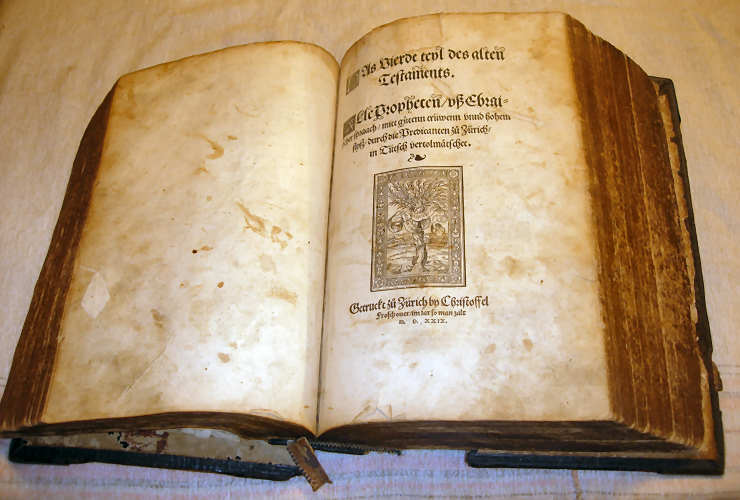 Das Vierde teyl des alten
Testaments.
Alle Propheten / vß Ebrai-
scher spraach / mitt gůtenn trüwenn vnnd hohem
flyß / durch die Predicanten zů Zürich /
in Tütsch vertolmätschet.
Getruckt zů Zürich by Christoffel
Froschouer / im iar so man zalt
M. D. XXIX.